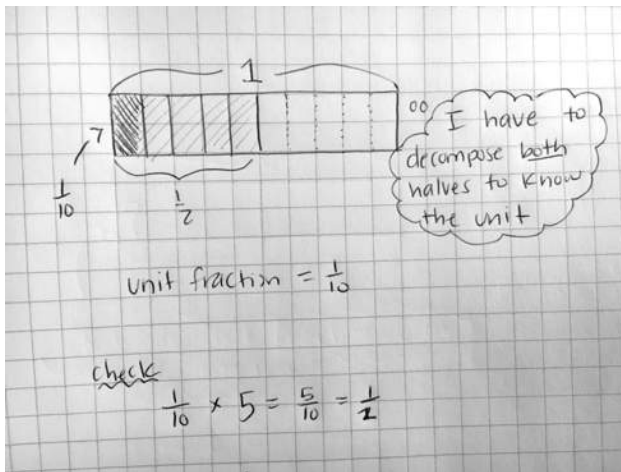 1
I have to
decompose both
halves to know
the unit
1/10
1/2
unit fraction = 1/10
check
1/10 × 5 = 5/10 = 1/2